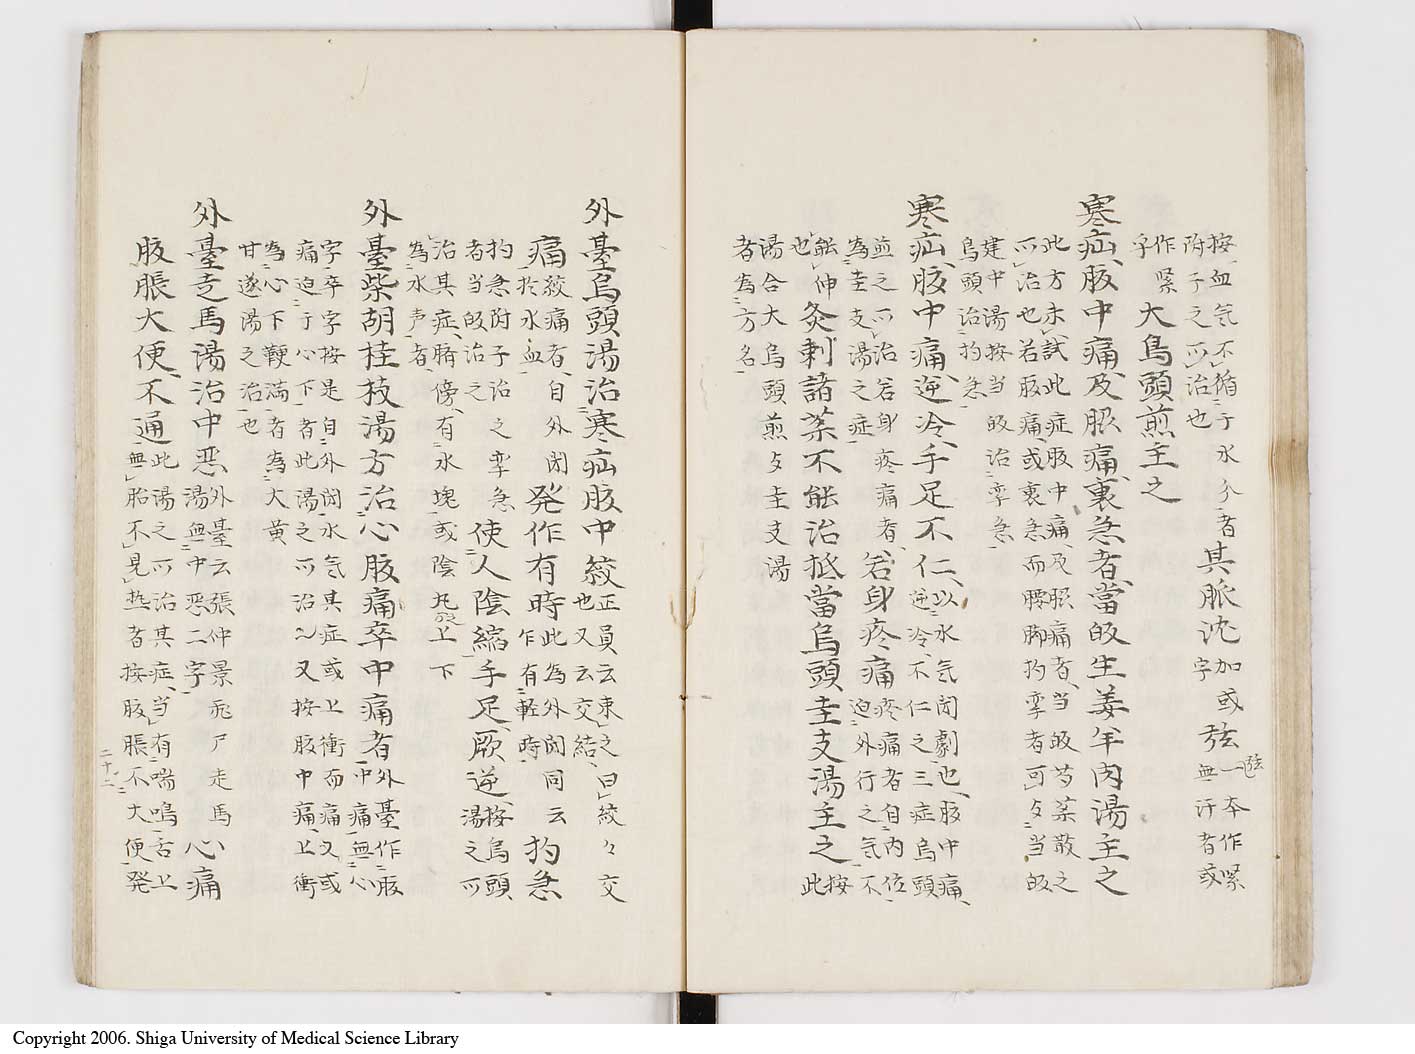 按血気不循于水分者其脈沈加或弦一本作緊
附子之所治也 字 無汗者或
作緊大烏頭煎主之
乎
寒疝腹中痛及脇痛裏急者當皈生姜羊肉湯主之
此方未試此症腹中痛及脇痛者当皈芍薬散之
所治也若腹痛或裏急而腰脚拘孿者可与当皈
建中湯按当皈治孿急
烏頭治拘急
寒疝腹中痛逆冷手足不仁以水気閉劇也腹中痛
逆冷不仁之三症烏頭
並之所治若身疼痛者若身疼痛疼痛者自内位
為圭支湯之症 迫外行之気不
能伸灸刺諸薬不能治抵當烏頭圭支湯主之按
也 此
湯合大烏頭煎与圭支湯
者為方名
外臺烏頭湯治寒疝腹中絞正員云束之曰絞々交
也又云交結
痛絞痛者自外閉発作有時此為外閉同云拘急
於水血 乍有軽時
拘急附子治之孿急使人陰縮手足厥逆按烏頭
者当皈治之 湯之所
治其症臍傍有水塊或陰丸上下
為水声者
外臺柴胡桂枝湯方治心腹痛卒中痛者外臺作腹
中痛無心
字卒字按是自外閉水気其症或上衝而痛又或
痛迫于心下者此湯之所治〻又按腹中痛上衝
為心下鞕満者為大黄
甘遂湯之治也
外臺走馬湯治中悪外臺云張仲景飛尸走馬心痛
湯無中悪二字
腹脹大便不通此湯之所治其症当有喘鳴舌上
無胎不見熱者按腹脹不大便発
二十二